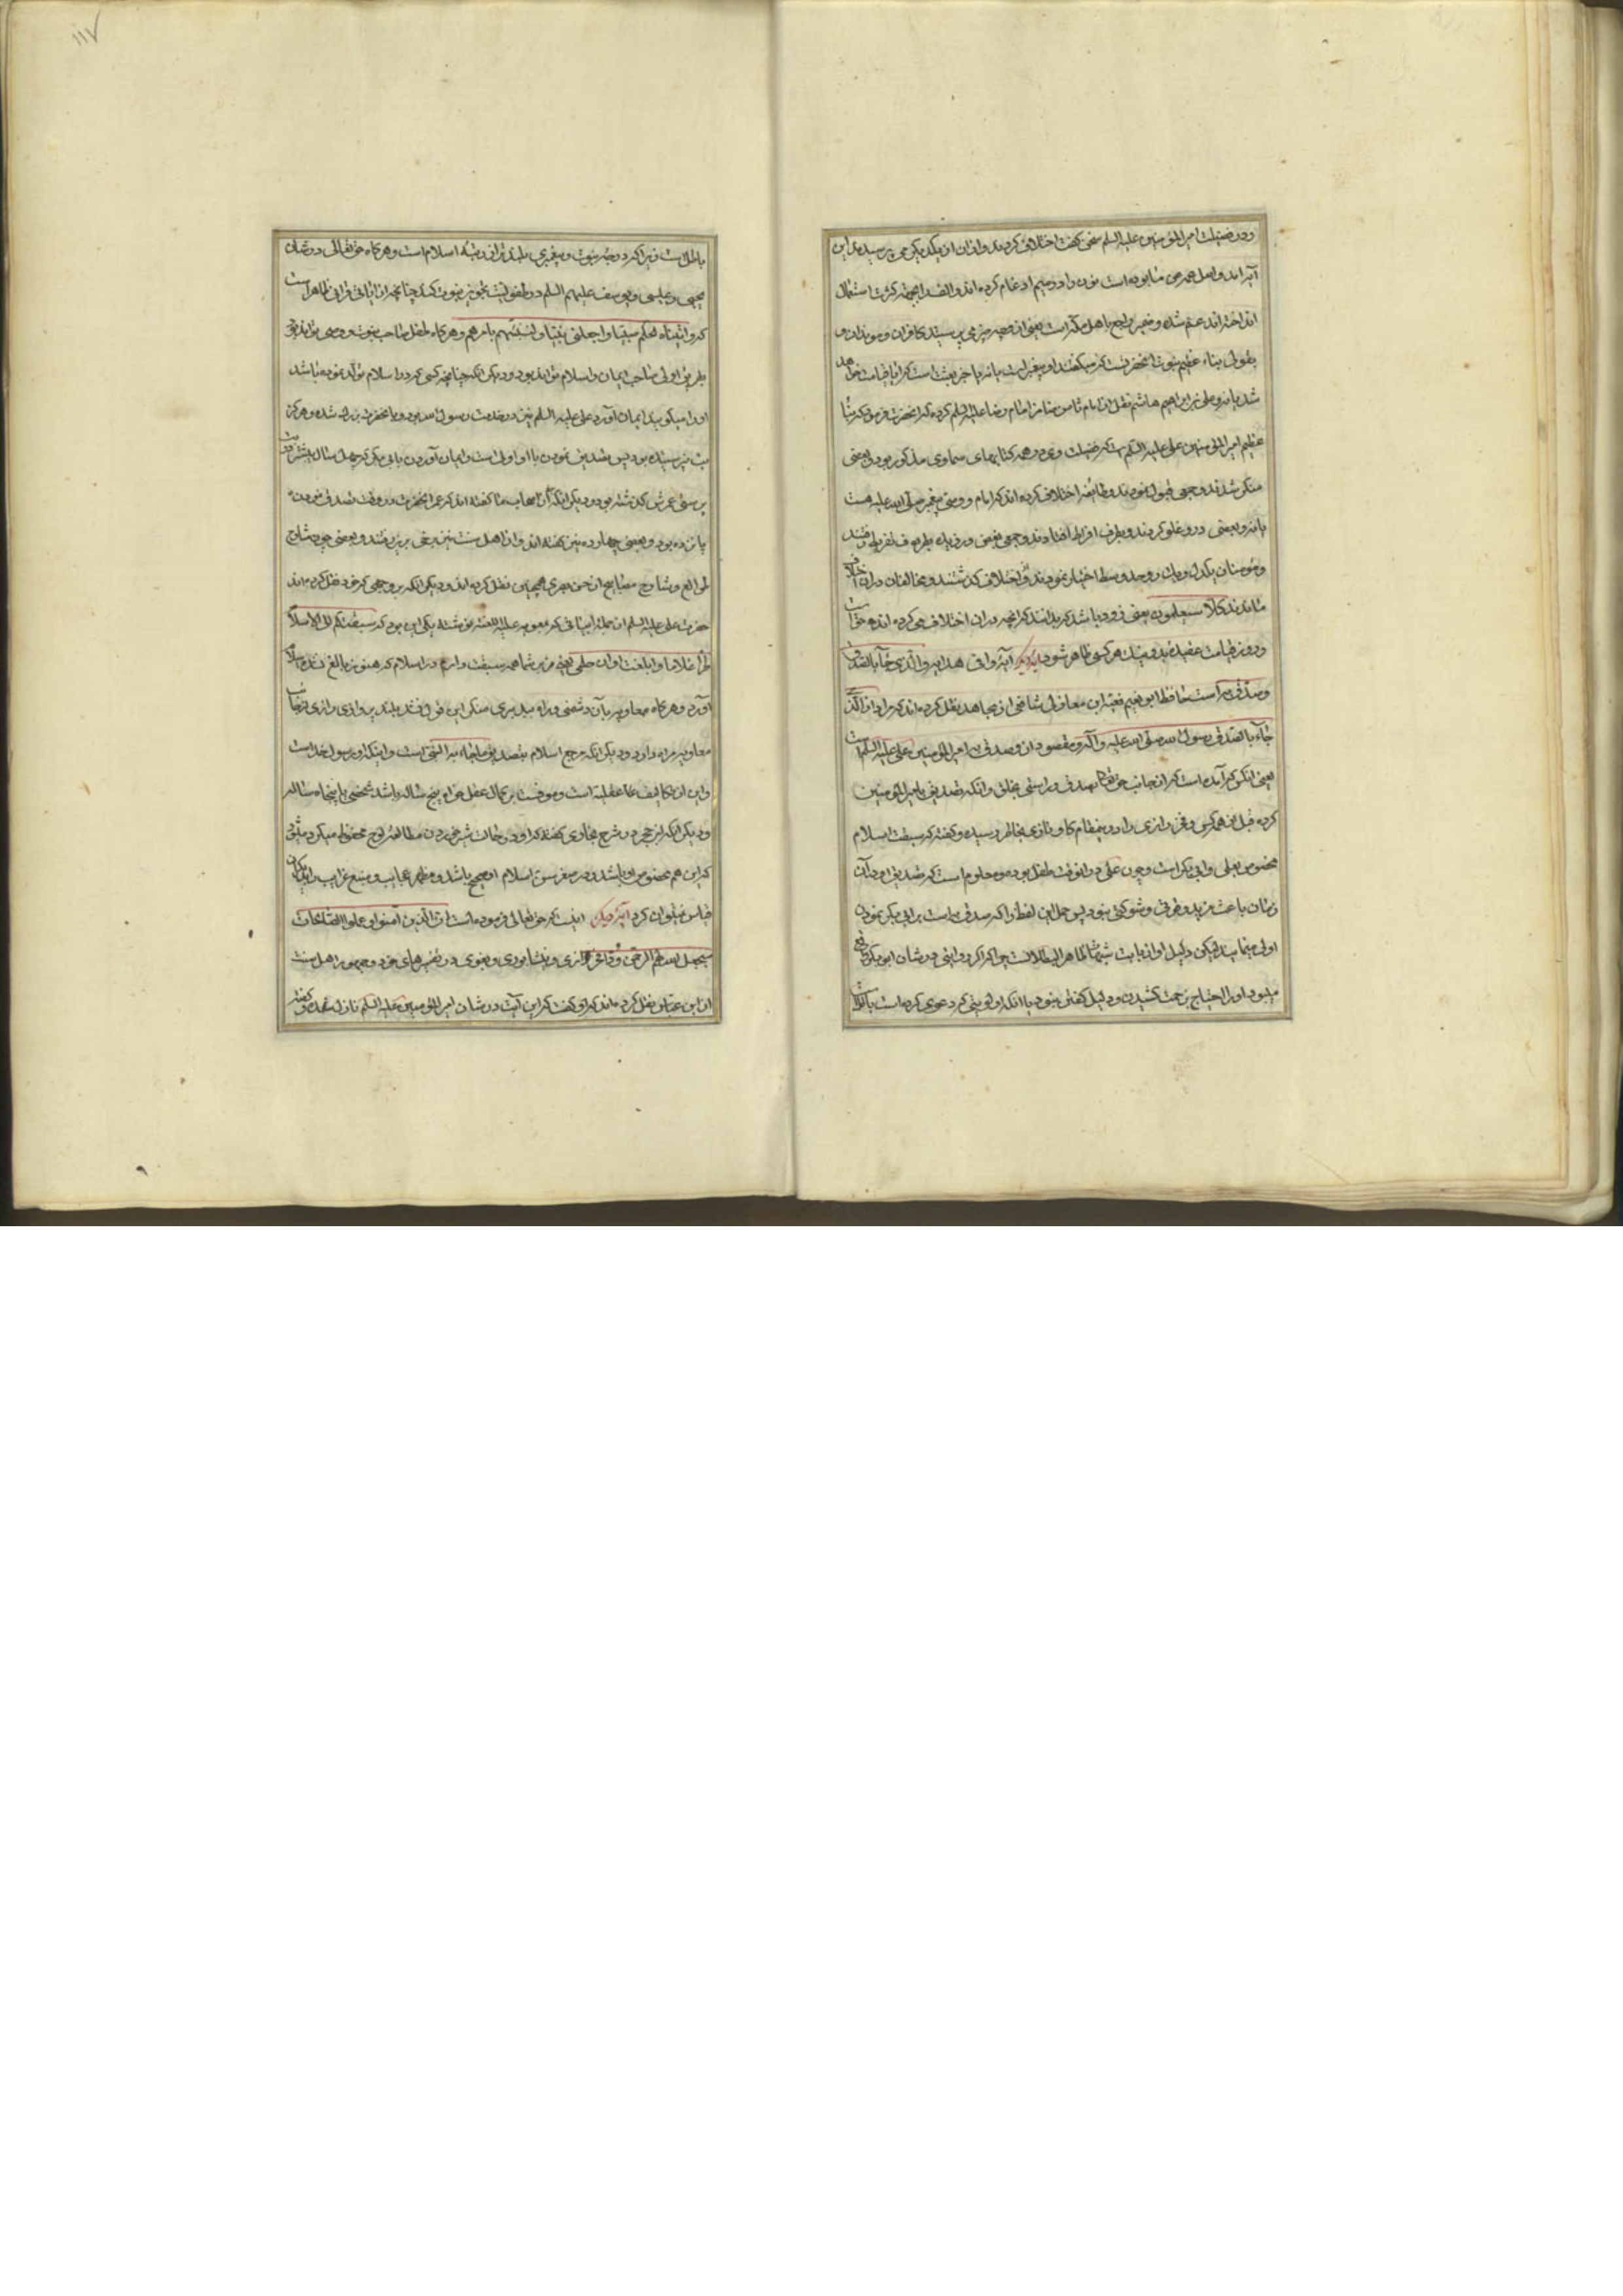 ودر فضیلت امیر المؤمنین علیه السلم سخن گفت اختلاف کردند و از ان از یکدیگر می پرسیدند این
آیه امد و اصل عم عن ما بوده است نون را در میم ادغام کرده اند و الف را بجهة کثرت استعمال
انداخته اند عم شده و ضمیر راجع باهل مکه است یعنی از چه چیز می پرسیدند کافران و مؤمنان و
بقولی نباء عظیم نبوت انحضرتست که میکفتند او پیغمبر است یا نه یا خبر بعث است که ایا قیامت خواهد
شد یا نه و علی بن ابراهیم هاشم نقل از امام ثامن ضامن امام رضا علیه السلم کرده که انحضرت فرمود که نباء
عظیم امیر المؤمنین علی علیه السلم است که فضیلت وی در همه کتابهای سماوی مذکور بود و بعضی
منکر شدند و جمعی قبول نمودند و طایفه اختلاف کرده اند که امام و وصی پیغمبر صلی الله علیه هست
یا نه و بعضی درو غلو کردند و بطرف افراط افتادند و جمعی بغض ورزیده بطریق تفریط رفتند
و مؤمنان یکدل و یک رو حد وسط اختیار نمودند و از اختلاف کذشتند و مخالفان در ان اختلاف
ماندند کلا سیعلمون یعنی زود باشد که بدانند که انچه در ان اختلاف می کرده اند حق است
و روز قیامت عقیده بد و نیک هر کس ظاهر شود آیه دیکر آیه وافی هدایه والذی جاء بالصدق
و صدق به است حافظ ابو نعیم فقیه ابن مغازلی شافعی از مجاهد نقل کرده اند که مراد از الذی
جاء بالصدق رسول الله صلی الله علیه و آله و مقصود از و صدق به امیر المؤمنین علی علیه السلم است
یعنی انکس که آمده است از جانب حق تعالی بصدق و راستی بخلق و انکه تصدیق امیر المؤمنین
کرده قبل از همه کس و فخر رازی را در ینمقام کاو تازی بخاطر رسیده و کفته که سبقت اسلام
مخصوص بعلی و ابی بکر است و چون علی در انوقت طفل بوده و معلوم است که تصدیق او در آن
زمان باعث مزید و شوکتی نبود پس حمل این لفظ را که صدق به است بر ابی بکر نمودن
اولی مینماید لیکن دلیل او از غایت شبهة ظاهر البطلانست چرا که اکر در واقع در شان ابو بکر
میبود او را احتیاج بزحمت کشیدن و دلیل کفتن نبود با انکه اولویتی که دعوی کرده است بالکلیه
۱۱۷
باطل است زیرا که درجه نبوت و پیغمبری بلند تر از رتبه اسلام است و هر کاه حق تعالی در شان
یحیی و عیسی و یوسف علیهم السلم در طفولیت تجویز نبوت کند چنانچه از ایات قرانی ظاهر است
که و اتیناه الحکم صبیا و اجعلنی نبیا و لتنبئنهم بامرهم و هر کاه طفل صاحب نبوت و وحی تواند بود
بطریق اولی صاحب ایمان و اسلام تواند بود و دیکر انکه چنانچه کسی که در اسلام تولد نموده باشد
او را میکویند ایمان آورد علی علیه السلم نیز در خدمت رسول الله بود و با انحضرت بزرک شده و هرکز
بت نپرسیده بود پس تصدیق نمودن با او اولی است و ایمان آوردن بابی بکر که چهل سال بیشتر در بت
پرستی عمرش کذشته بود و دیکر انکه آن اصحاب ما کفته اند که عمر انحضرت در وقت تصدیق نمودن
پانزده بود و بعضی چهارده نیز کفته اند و از اهل سنت نیز بعضی برین رفتند و بعضی چون شارح
طوالع و شارح مصابیح از حسن بصری همچنین نقل کرده اند و دیکر انکه بر وجهی که خود نقل کرده اند
حضرت علی علیه السلم از جمله ابیاتی که بمعویه علیه اللعنه نوشته یکی این بود که سبقتکم الی الاسلام
طرا غلاما ما بلغت اوان حلمی یعنی من بر شما همه سبقت دارم در اسلام که هنوز بالغ نشده اسلام
آورده و هر کاه معاویه بآن دشمنی و راه بدبری منکر این قول نشد بلند پروازی رازی
معاویه مزه دارد و دیکر انکه مرجع اسلام بتصدیق ماجاء به النبی است و اینکه او رسول خداست
و این از تکالیف عقلیه است و موقوف بر کمال عقل خواه پنج ساله باشد شخصی یا پنجاه ساله
و دیکر انکه ابن حجر در شرح بخاری کفته که او در حالت شیر خوردن مطالعه لوح محفوظ میکرد
که این هم مخصوص او باشد و در صغر سن اسلام او صحیح باشد و مظهر عجایب و منبع غرایب را بدیکران
قیاس نمیتوان کرد آیه دیکر اینست که حق تعالی فرموده است ان الذین آمنوا و عملوا الصالحات
سیجعل لهم الرحمن ودا فخر رازی و نیشابوری و بغوی در تفسیرهای خود و جمهور اهل سنت
از ابن عباس نقل کرده اند که او کفت که این آیت در شان امیر المؤمنین علیه السلم نازل شده و کفته